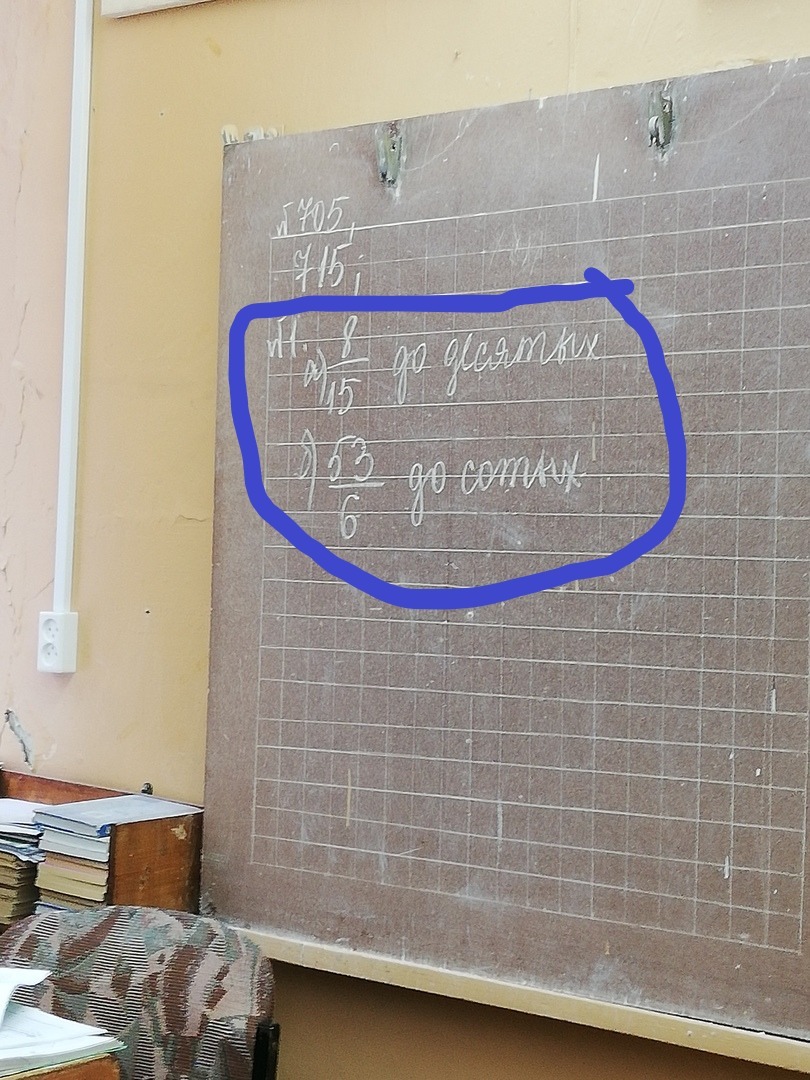 №705,
715;
№1.
а) 8/15 до десятых
б) 53/6 до сотых